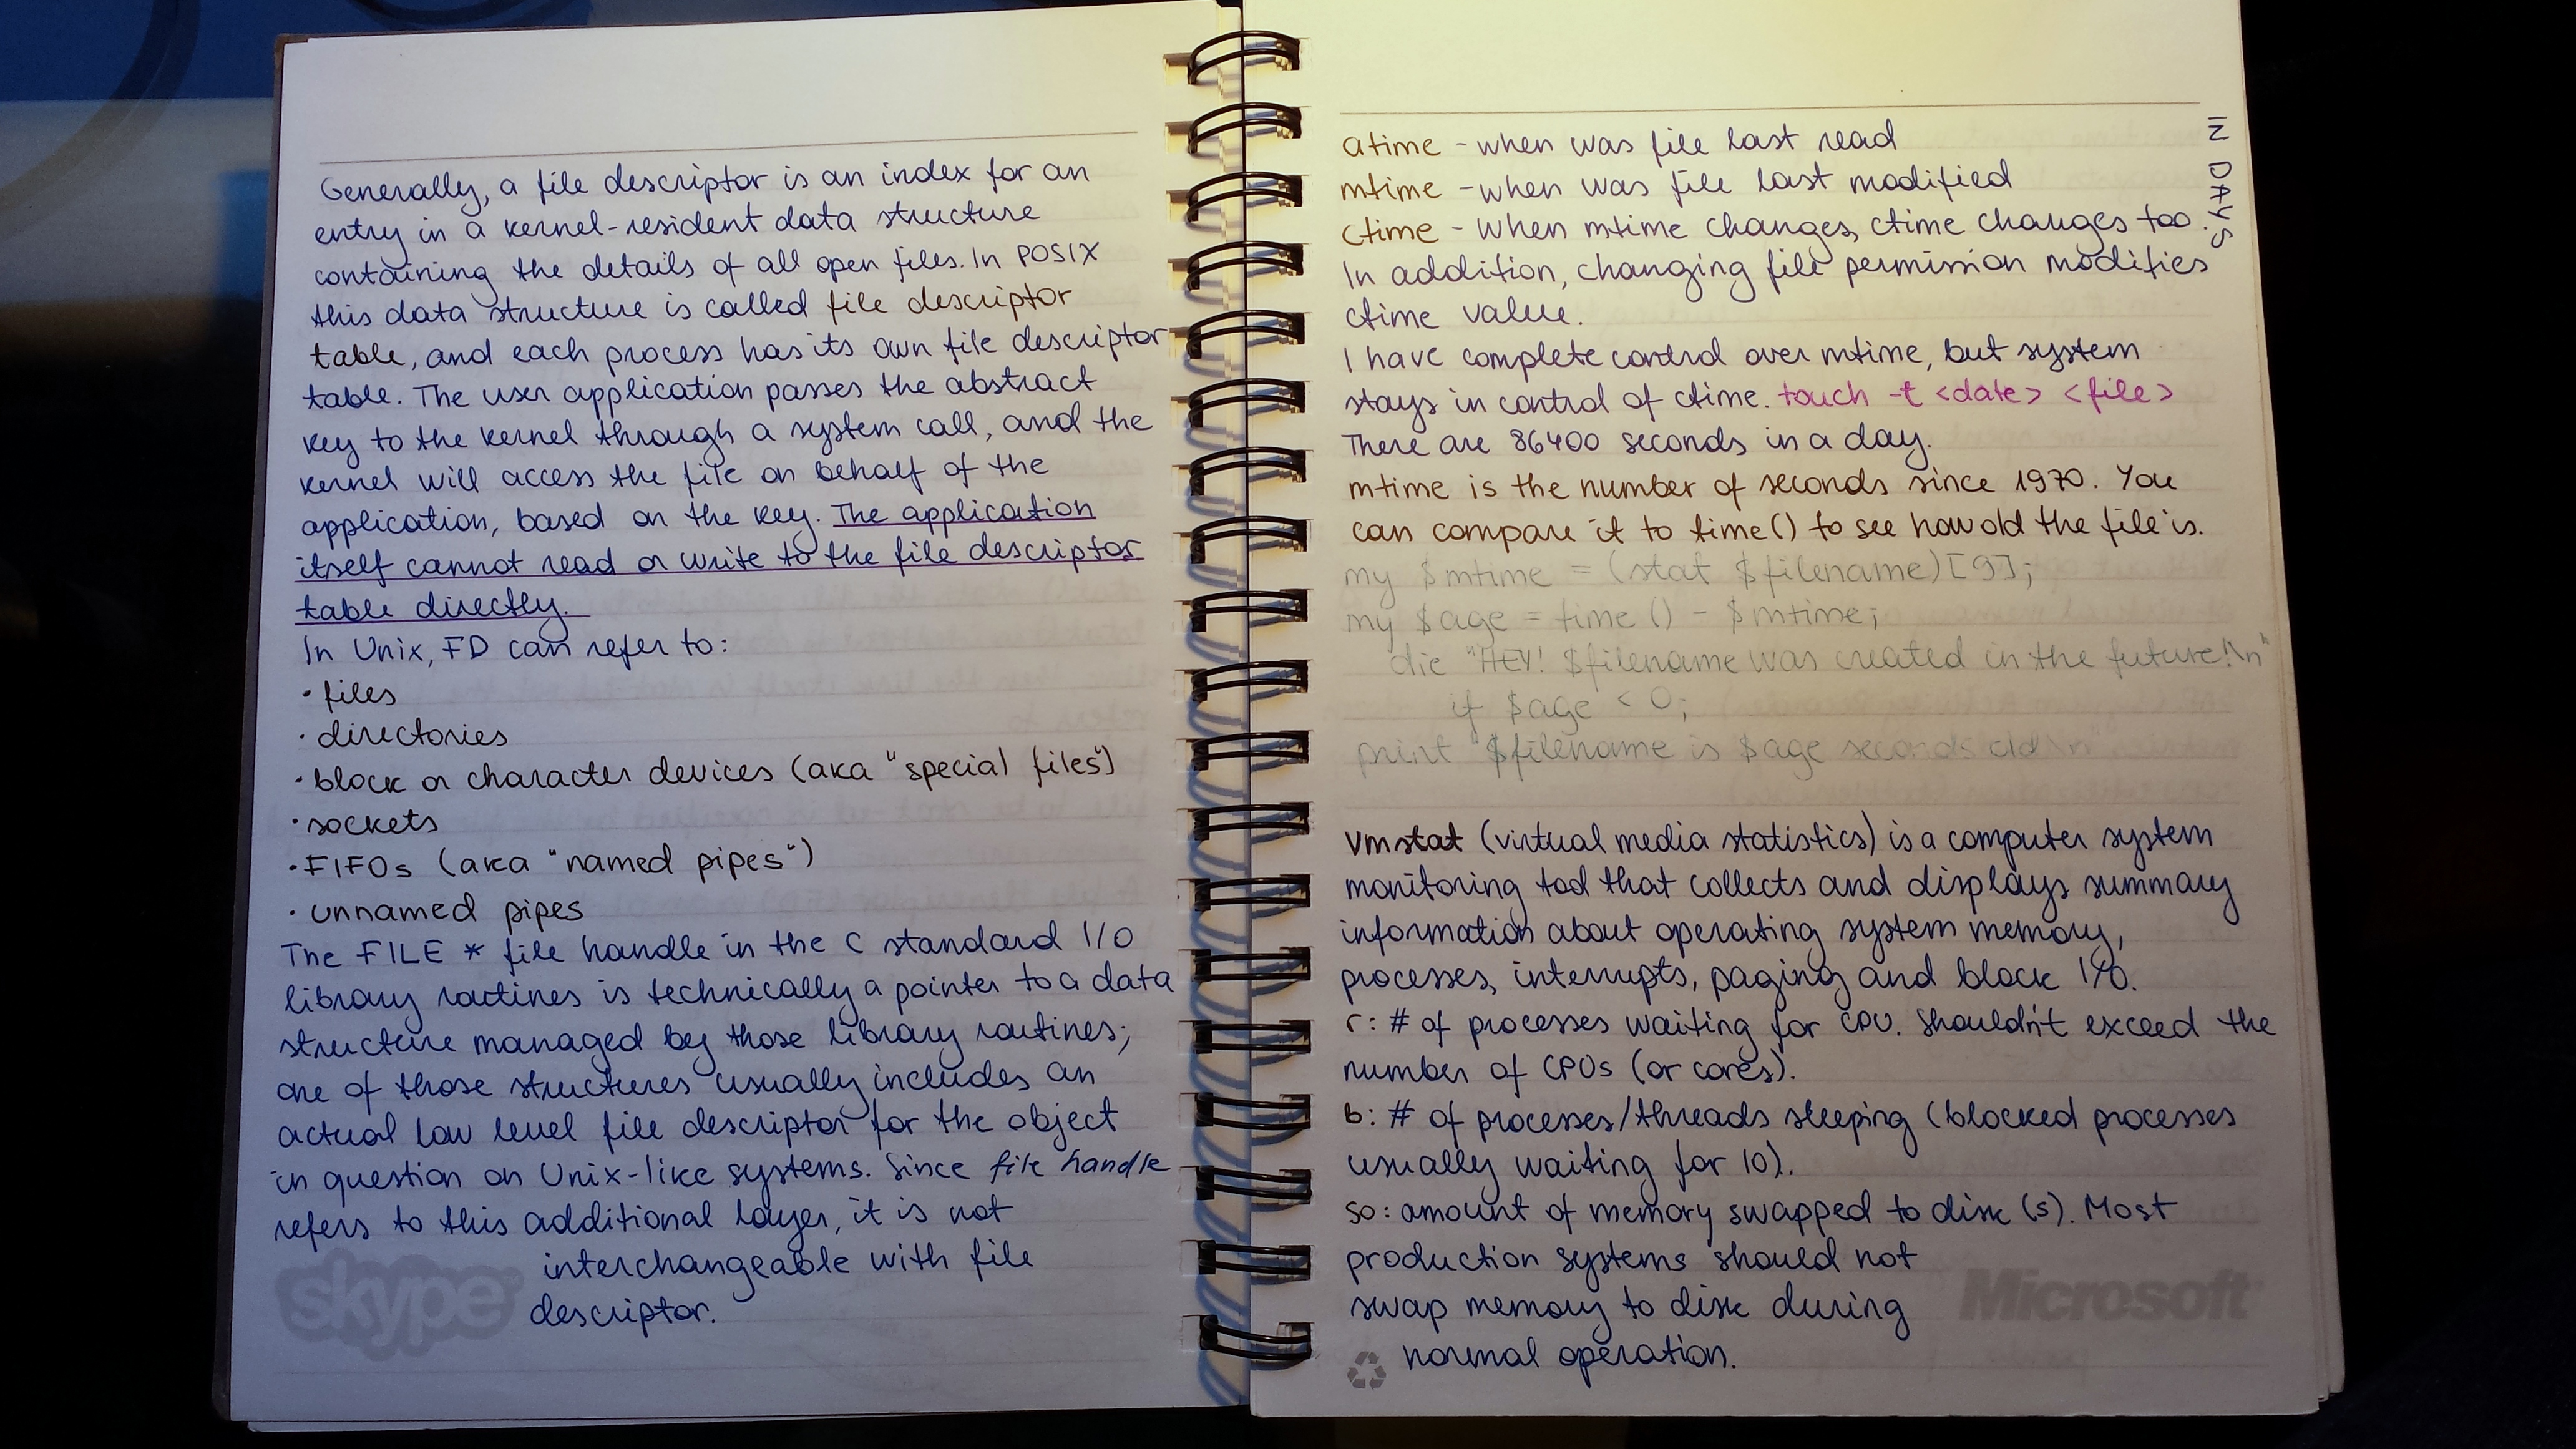 Generally, a file descriptor is an index for an
entry in a kernel-resident data structure
containing the details of all open files. In POSIX
this data structure is called file descriptor
table, and each process has its own file descriptor
table. The user application passes the abstract
key to the kernel through a system call, and the
kernel will access the file on behalf of the
application, based on the key. The application
itself cannot read or write to the file descriptor
table directly.
In Unix, FD can refer to:
· files
· directories
· block or character devices (aka "special files")
· sockets
· FIFOs (aka "named pipes")
· unnamed pipes
The FILE * file handle in the C standard I/O
library routines is technically a pointer to a data
structure managed by those library routines;
one of those structures usually includes an
actual low level file descriptor for the object
in question on Unix-like systems. Since file handle
refers to this additional layer, it is not
interchangeable with file
descriptor.
skype
atime - when was file last read
mtime - when was file last modified
ctime - when mtime changes, ctime changes too.
IN DAYS
In addition, changing file permission modifies
ctime value.
I have complete control over mtime, but system
stays in control of ctime. touch -t <date> <file>
There are 86400 seconds in a day.
mtime is the number of seconds since 1970. You
can compare it to time() to see how old the file is.
my $mtime = (stat $filename)[9];
my $age = time () - $mtime;
die "HEY! $filename was created in the future!\n"
if $age < 0;
print "$filename is $age seconds old\n";
vmstat (virtual media statistics) is a computer system
monitoring tool that collects and displays summary
information about operating system memory,
processes, interrupts, paging and block I/O.
r: # of processes waiting for CPU. Shouldn't exceed the
number of CPUs (or cores).
b: # of processes/threads sleeping (blocked processes
usually waiting for IO).
so: amount of memory swapped to disk (s). Most
production systems should not
swap memory to disk during
normal operation.
Microsoft